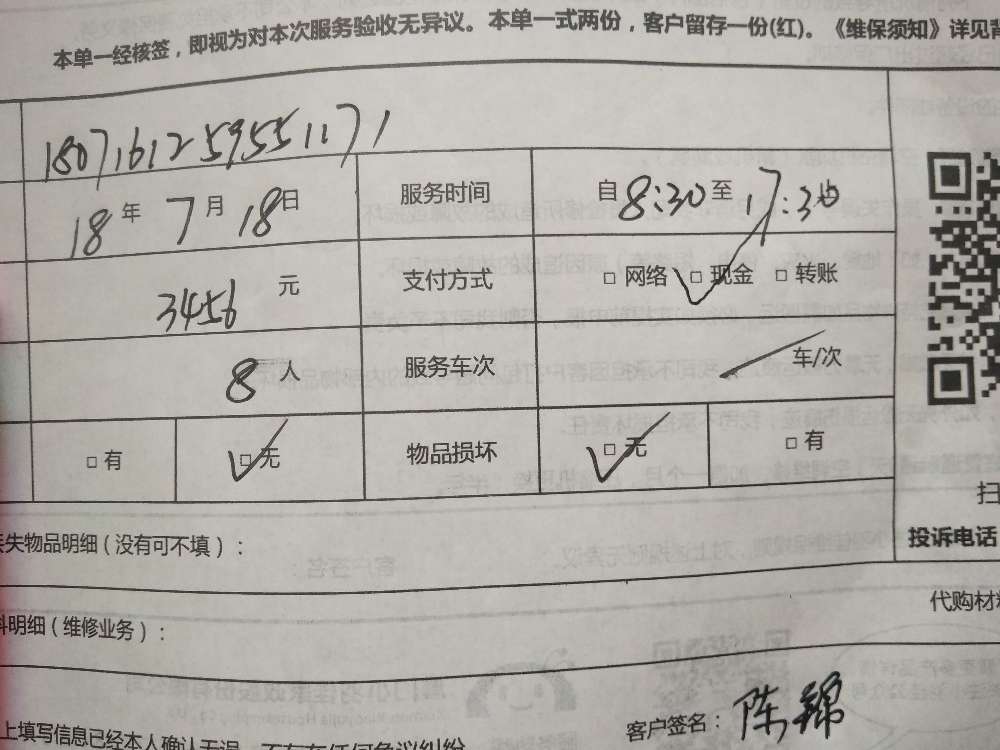 本单一经核签，即视为对本次服务验收无异议。本单一式两份，客户留存一份(红)。《维保须知》详见背
1807161259551171
18年7月18日 服务时间 自8:30至17:30
3456元 支付方式 □网络 ☑现金 □转账
8人 服务车次 车/次
□有 ☑无 物品损坏 ☑无 □有
扫
失物品明细（没有可不填）：
投诉电话
代购材料
明细（维修业务）：
客户签名：陈锦
上填写信息已经本人确认无误，不存在任何争议纠纷